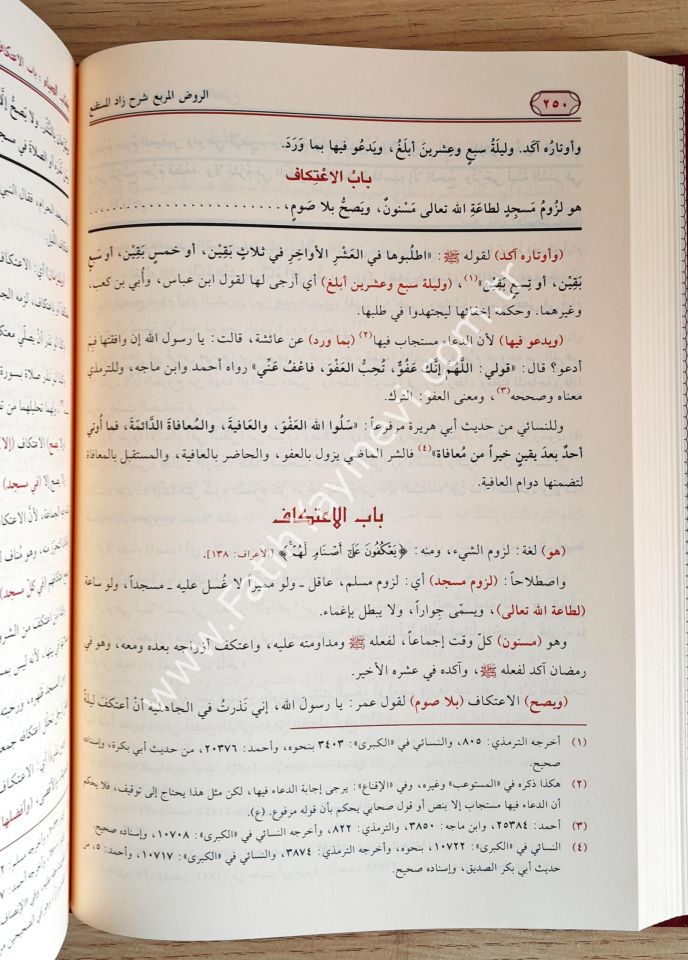 الروض المربع شرح زاد المستقنع
٢٥٠
وأوتاره آكد. وليلَةُ سبعٍ وعِشرينَ أبلَغُ، ويَدعُو فيها بما وَرَدَ.
بابُ الاعْتِكاف
هو لزُومُ مَسجِدٍ لطاعَةِ الله تعالى مَسْنونٌ، ويَصحُّ بلا صَومٍ،
(وأوتاره آكد) لقوله ﷺ: «اطلُبوها في العَشْرِ الأواخِرِ في ثلاثٍ بَقِيْن، أو خمسٍ بَقِيْن، أو سَبعٍ
بَقِيْن، أو تِسعٍ بَقِيْن»(١)، (وليلة سبع وعشرين أبلغ) أي أرجى لها لقول ابن عباس، وأُبي بن كعب.
وغيرهما. وحكمة إخفائها ليجتهدوا في طلبها.
(ويدعو فيها) لأنَّ الدعاء مستجاب فيها(٢) (بما ورد) عن عائشة، قالت: يا رسول الله إن وافقتها فبِمَ
أدعو؟ قال: «قولي: اللَّهُمَّ إنَّكَ عَفُوٌّ، تُحِبُّ العَفْوَ، فاعْفُ عَنِّي» رواه أحمد وابن ماجه، وللترمذي
معناه وصححه(٣)، ومعنى العفو: الترك.
وللنسائي من حديث أبي هريرة مرفوعاً: «سَلُوا الله العَفْوَ، والعَافيةَ، والمُعافاةَ الدَّائمَةَ، فما أُوتي
أحدٌ بعدَ يقينٍ خيراً من مُعافاة»(٤) فالشر الماضي يزول بالعفو، والحاضر بالعافية، والمستقبل بالمعافاة
لتضمنها دوام العافية.
باب الاعتكاف
(هو) لغة: لزوم الشيء، ومنه: ﴿يَعْكُفُونَ عَلَىٰ أَصْنَامٍ لَّهُمْ﴾ [الأعراف: ١٣٨].
واصطلاحاً: (لزوم مسجد) أي: لزوم مسلم، عاقل ـ ولو مميزاً لا غُسل عليه ـ مسجداً، ولو ساعة
(لطاعة الله تعالى)، ويسمّى جِواراً، ولا يبطل بإغماء.
وهو (مسنون) كلّ وقت إجماعاً، لفعله ﷺ ومداومته عليه، واعتكف أزواجه بعده ومعه، وهو في
رمضان آكد لفعله ﷺ، وآكده في عشره الأخير.
(ويصح) الاعتكاف (بلا صوم) لقول عمر: يا رسول الله، إني نَذرتُ في الجاهلية أنْ أعتكفَ ليلةً
(١) أخرجه الترمذي: ٨٠٥، والنسائي في «الكبرى»: ٣٤٠٣ بنحوه، وأحمد: ٢٠٣٧٦، من حديث أبي بكرة، وإسناده
صحيح.
(٢) هكذا ذكره في «المستوعب» وغيره، وفي «الإقناع»: يرجى إجابة الدعاء فيها، لكن مثل هذا يحتاج إلى توقيف، فلا يحكم
أن الدعاء فيها مستجاب إلا بنص أو قول صحابي يحكم بأن قوله مرفوع. (ع).
(٣) أحمد: ٢٥٣٨٤، وابن ماجه: ٣٨٥٠، والترمذي: ٨٢٢، وأخرجه النسائي في «الكبرى»: ١٠٧٠٨، وإسناده صحيح.
(٤) النسائي في «الكبرى»: ١٠٧٢٢، بنحوه، وأخرجه الترمذي: ٣٨٧٤، والنسائي في «الكبرى»: ١٠٧١٧، وأحمد: ٥، من
حديث أبي بكر الصديق، وإسناده صحيح.
www.Fatihyayinevi.com.tr